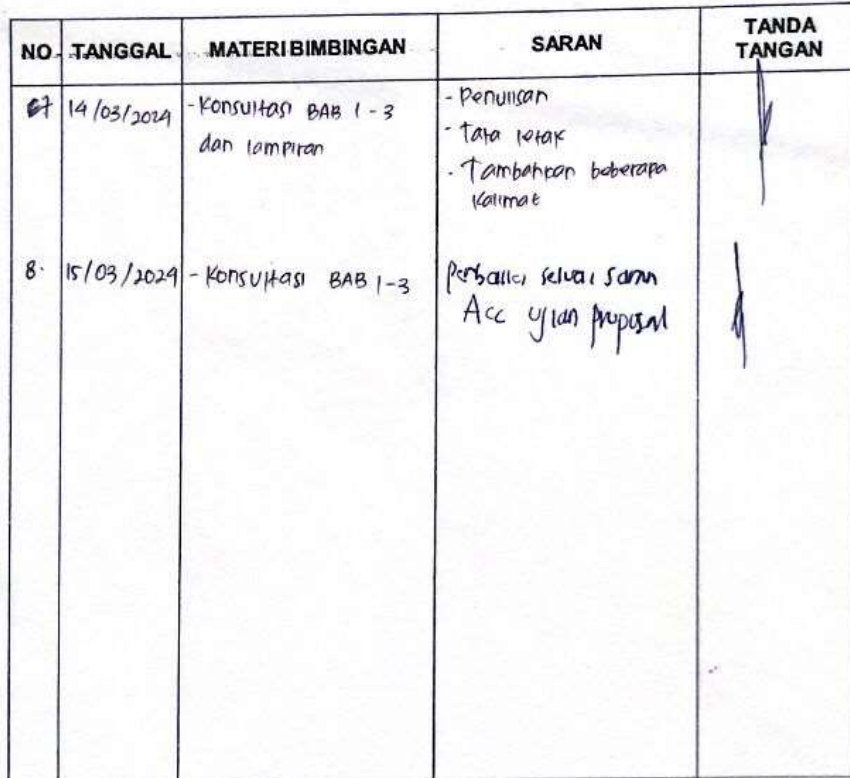 NO. TANGGAL MATERI BIMBINGAN SARAN TANDA TANGAN
7 14/03/2024 - Konsultasi BAB 1 - 3 - Penulisan
dan lampiran - Tata letak
- Tambahkan beberapa
kalimat
8. 15/03/2024 - Konsultasi BAB 1-3 Perbaiki sesuai saran
Acc ujian proposal